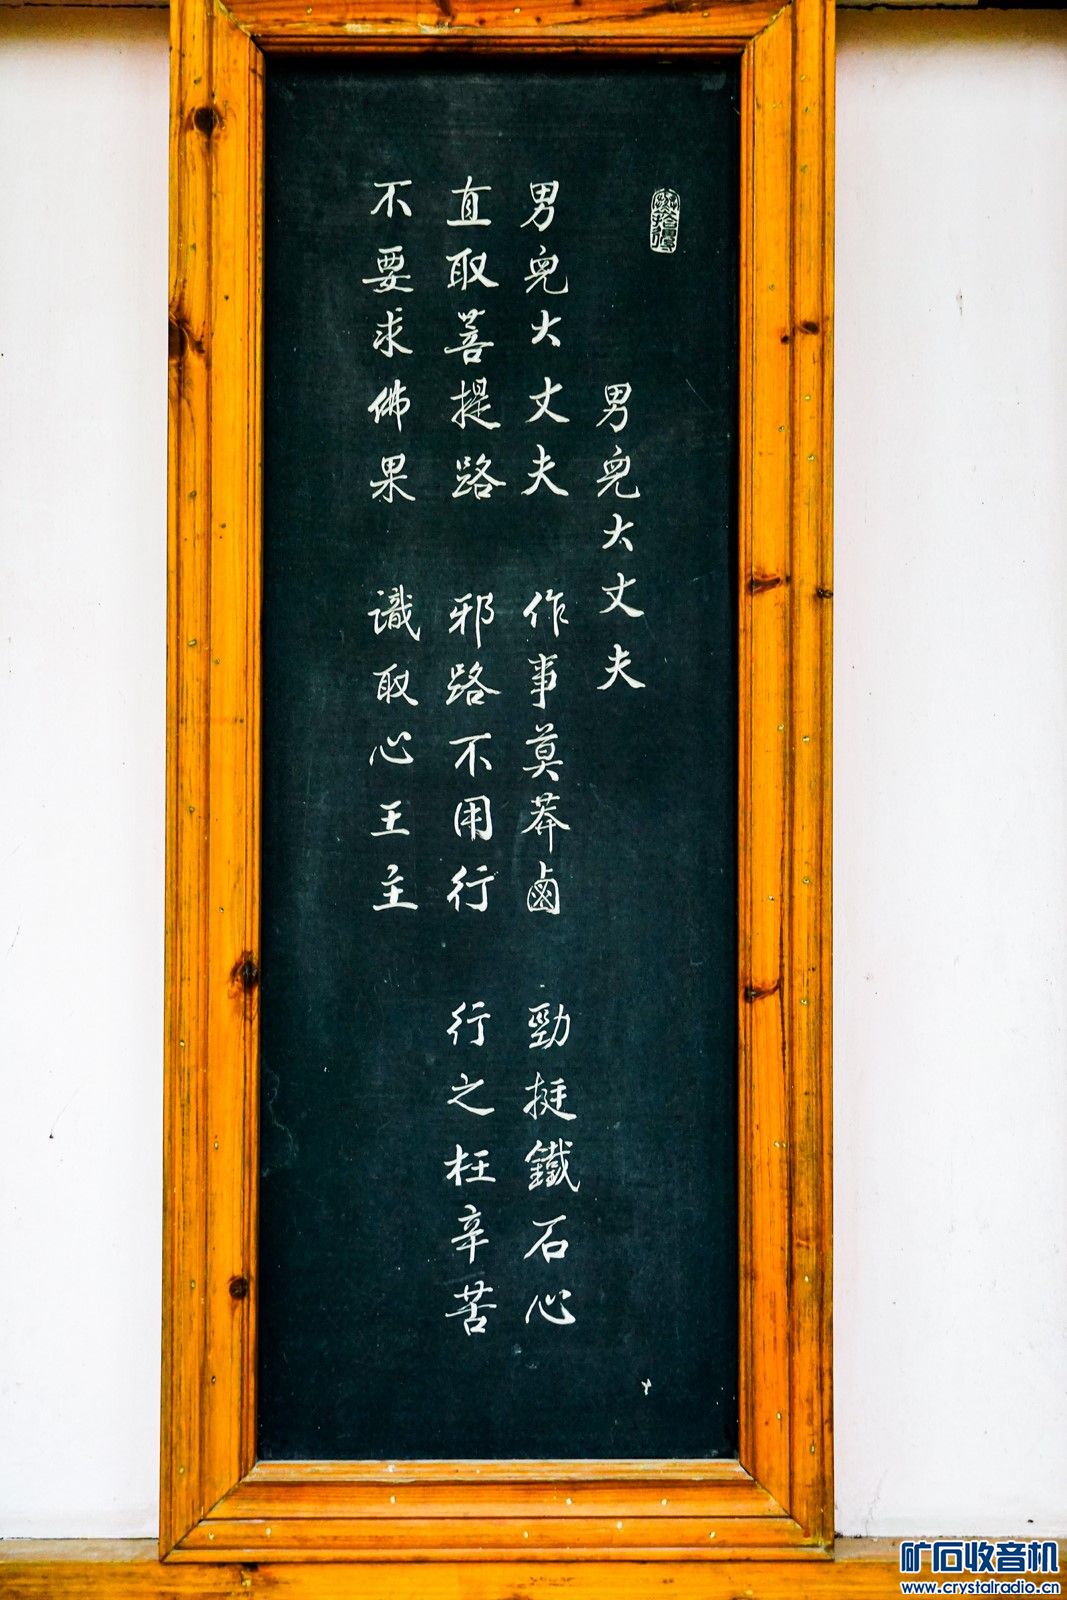 男兒大丈夫
男兒大丈夫 作事莫莽鹵 勁挺鐵石心
直取菩提路 邪路不用行 行之枉辛苦
不要求佛果 識取心王主
矿石收音机
www.crystalradio.cn